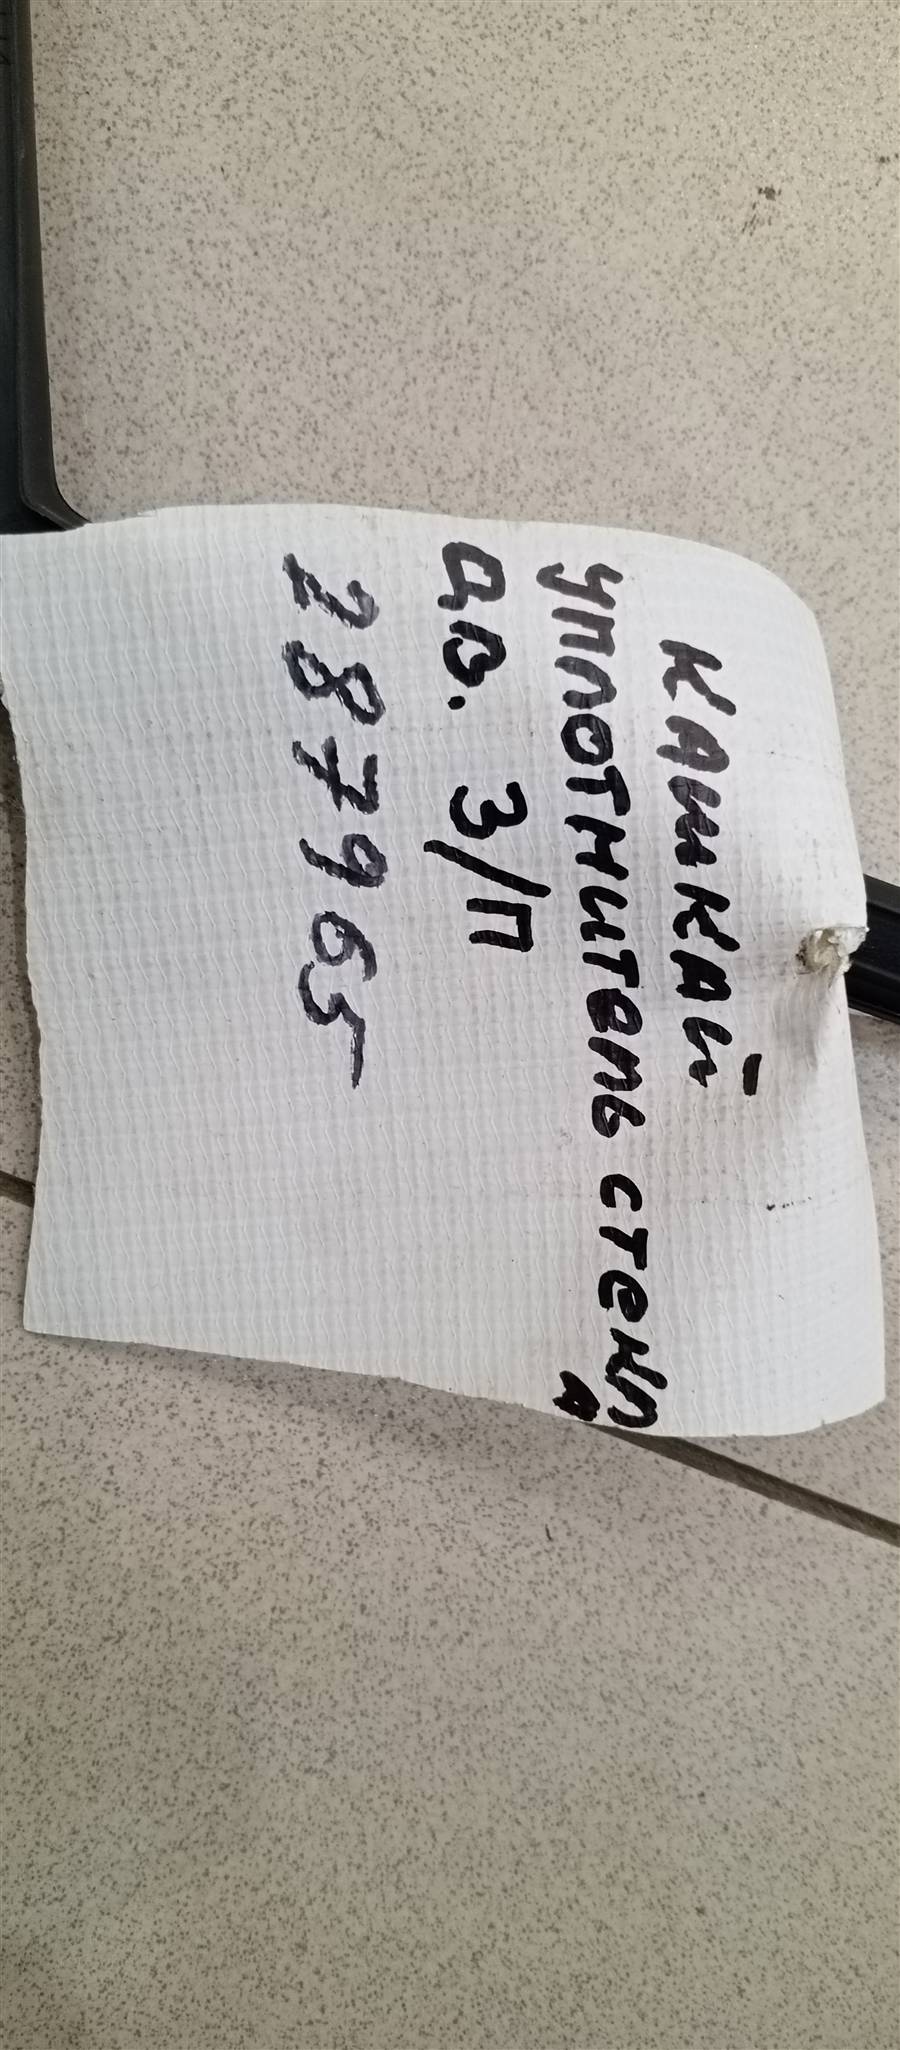 Кашкай
уплотнитель стекла
дв. З/П
287965